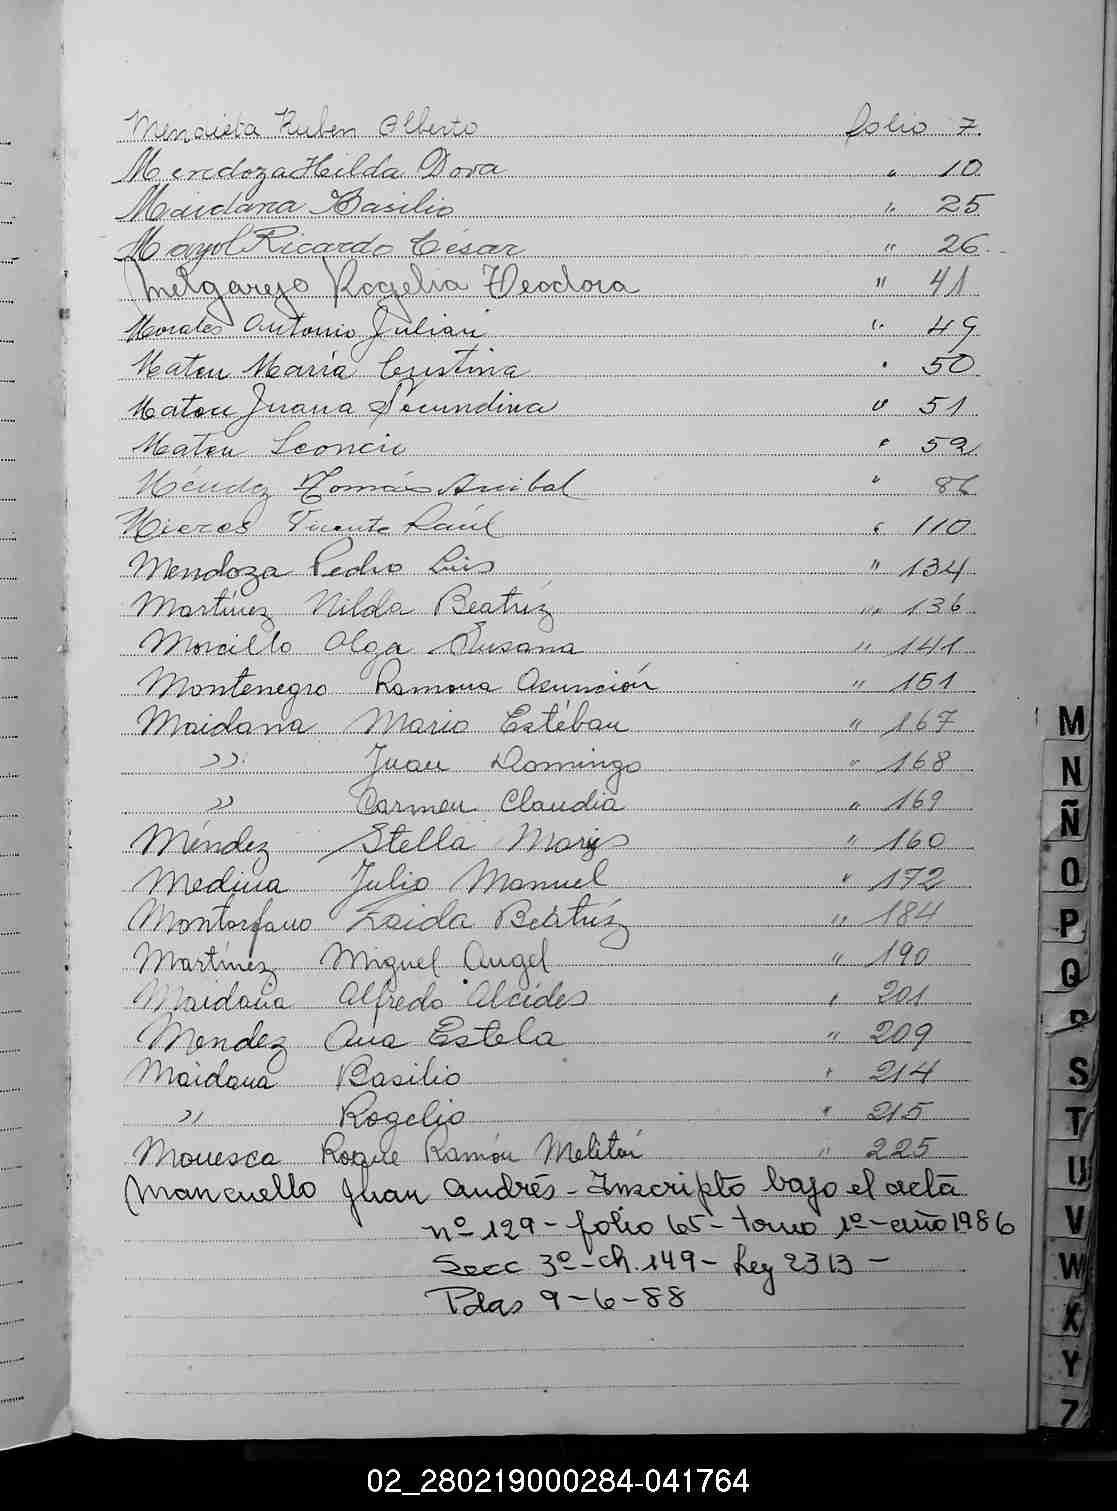 Mendieta Ruben Alberto folio 7
Mendoza Hilda Dora " 10
Maidana Basilio " 25
Mayol Ricardo César " 26
Melgarejo Rogelia Teodora " 41
Morales Antonio Julian " 49
Mateu María Cristina " 50
Mateu Juana Secundina " 51
Mateu Leoncio " 52
Méndez Tomás Anibal " 86
Mieres Vicente Raúl " 110
Mendoza Pedro Luis " 134
Martínez Nilda Beatríz " 136
Morcillo Olga Susana " 141
Montenegro Ramona Asunción " 151
Maidana Mario Estéban " 167
" Juan Domingo " 168
" Carmen Claudia " 169
Méndez Stella Marys " 160
Medina Julio Manuel " 172
Montorfano Zaida Beatríz " 184
Martínez Miguel Angel " 190
Maidana Alfredo Alcídes " 201
Mendez Ana Estela " 209
Maidana Basilio " 214
" Rogelio " 215
Monesca Roque Ramón Melitón " 225
Mancuello Jhan Andrés - Inscripto bajo el acta
nº 129 - folio 65 - tomo 1º - año 1986
Secc 3º - ch. 149 - Ley 2313 -
Pdas 9-6-88
M
N
Ñ
O
P
Q
R
S
T
U
V
W
X
Y
Z
02_280219000284-041764